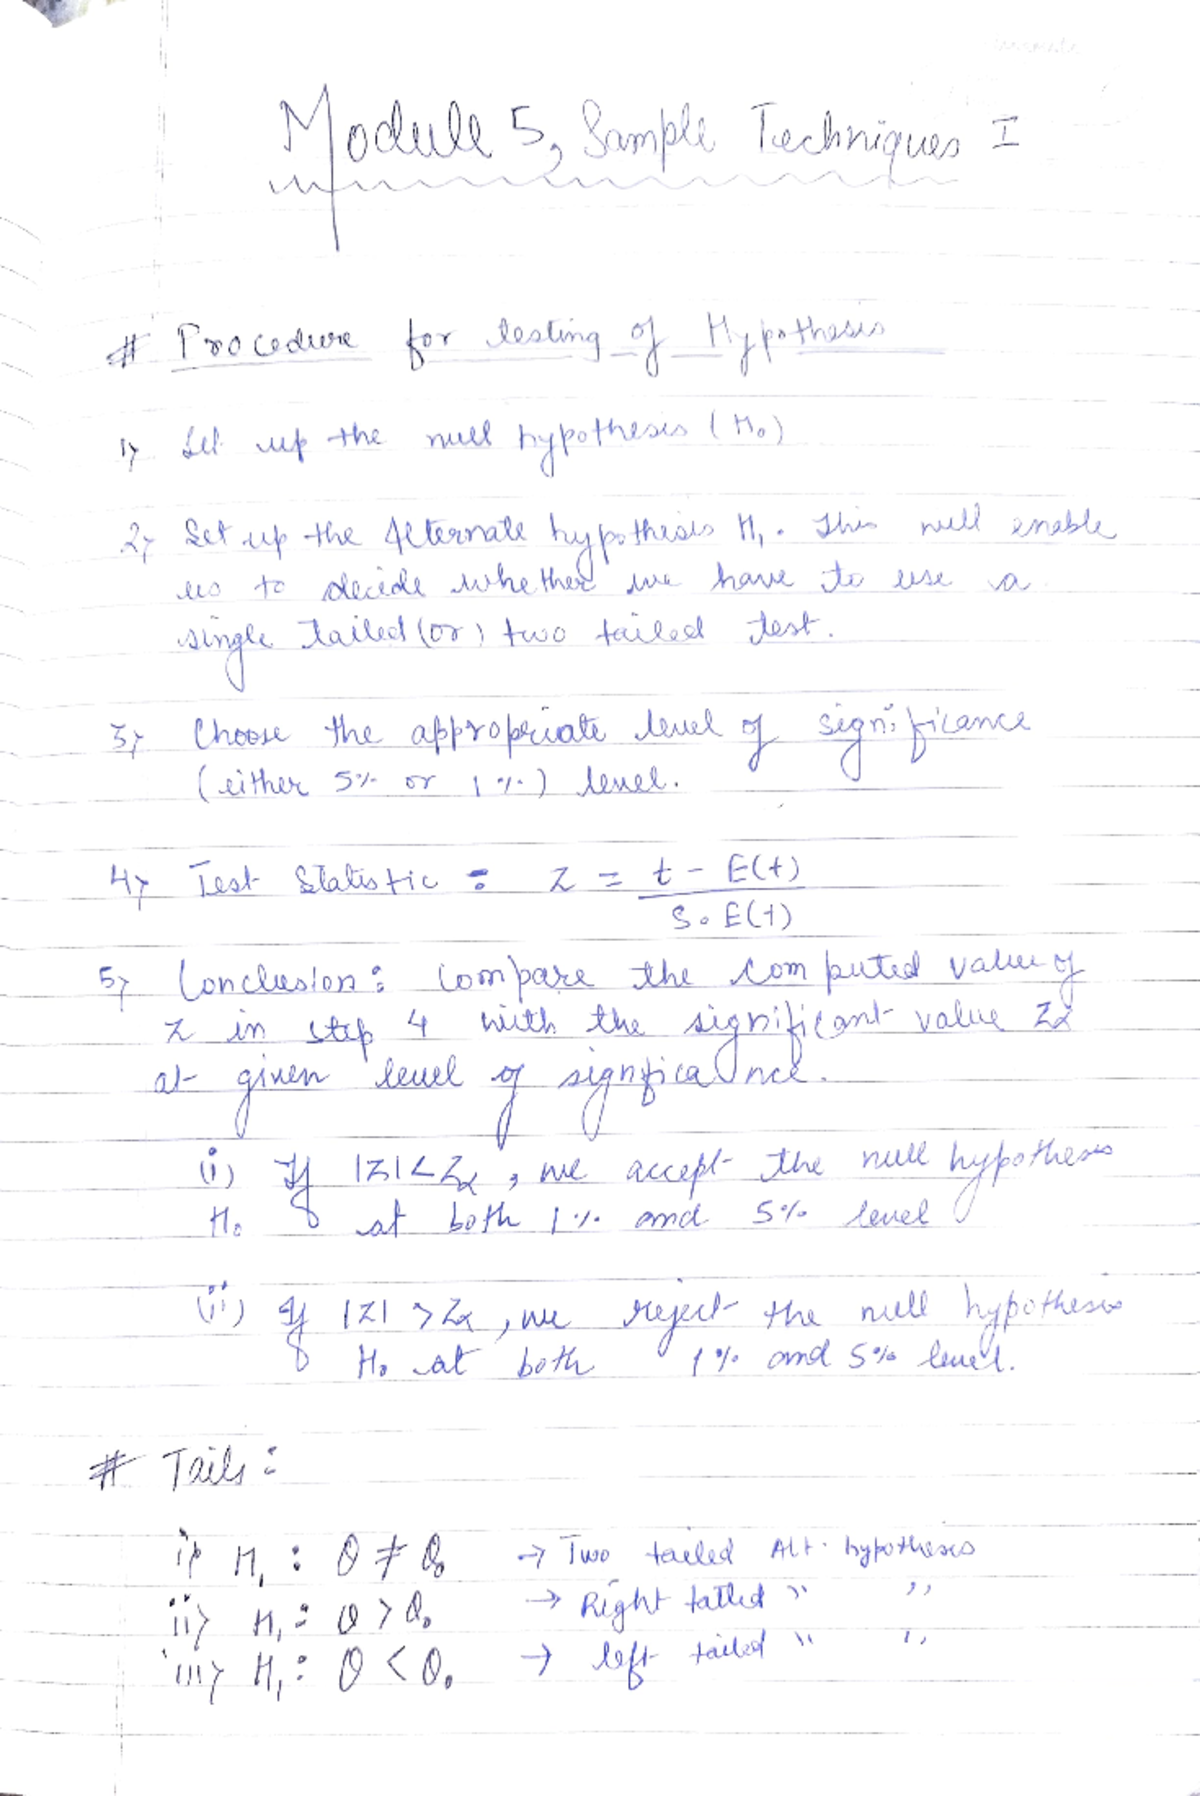 Module 5, Sample Techniques I
# Procedure for testing of Hypothesis
1) Set up the null hypothesis (H₀)
2) Set up the Alternate hypothesis H₁. This will enable
us to decide whether we have to use a
single tailed (or) two tailed test.
3) Choose the appropriate level of significance
(either 5% or 1%) level.
4) Test Statistic : Z = t - E(t)
S.E(t)
5) Conclusion : Compare the computed value of
Z in step 4 with the significant value Zα
at given level of significance.
(i) If |Z| < Zα, we accept the null hypothesis
H₀ at both 1% and 5% level
(ii) If |Z| > Zα, we reject the null hypothesis
H₀ at both 1% and 5% level.
# Tails :
i) H₁ : θ ≠ θ₀ → Two tailed Alt. hypothesis
ii) H₁ : θ > θ₀ → Right tailed " "
iii) H₁ : θ < θ₀ → left tailed " "